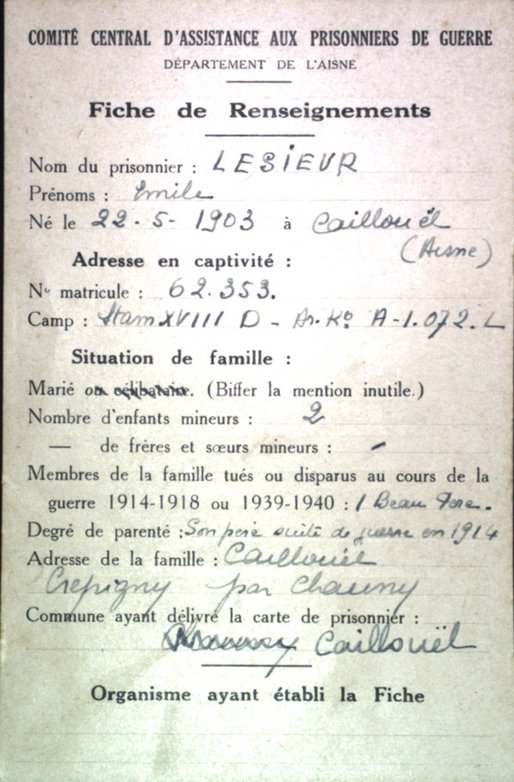 COMITÉ CENTRAL D'ASSISTANCE AUX PRISONNIERS DE GUERRE
DÉPARTEMENT DE L'AISNE
Fiche de Renseignements
Nom du prisonnier : LESIEUR
Prénoms : Emile
Né le 22-5-1903 à Caillouël
(Aisne)
Adresse en captivité :
No matricule : 62.353.
Camp : Stam XVIII D - Ar. Ko A-1.072.L
Situation de famille :
Marié ou célibataire. (Biffer la mention inutile.)
Nombre d'enfants mineurs : 2
— de frères et sœurs mineurs : -
Membres de la famille tués ou disparus au cours de la
guerre 1914-1918 ou 1939-1940 : 1 Beau Père.
Degré de parenté : Son père suite de guerre en 1914
Adresse de la famille : Caillouël
Crepigny par Chauny
Commune ayant délivré la carte de prisonnier :
Caillouël
Organisme ayant établi la Fiche